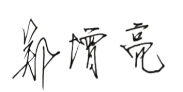 郑增亮